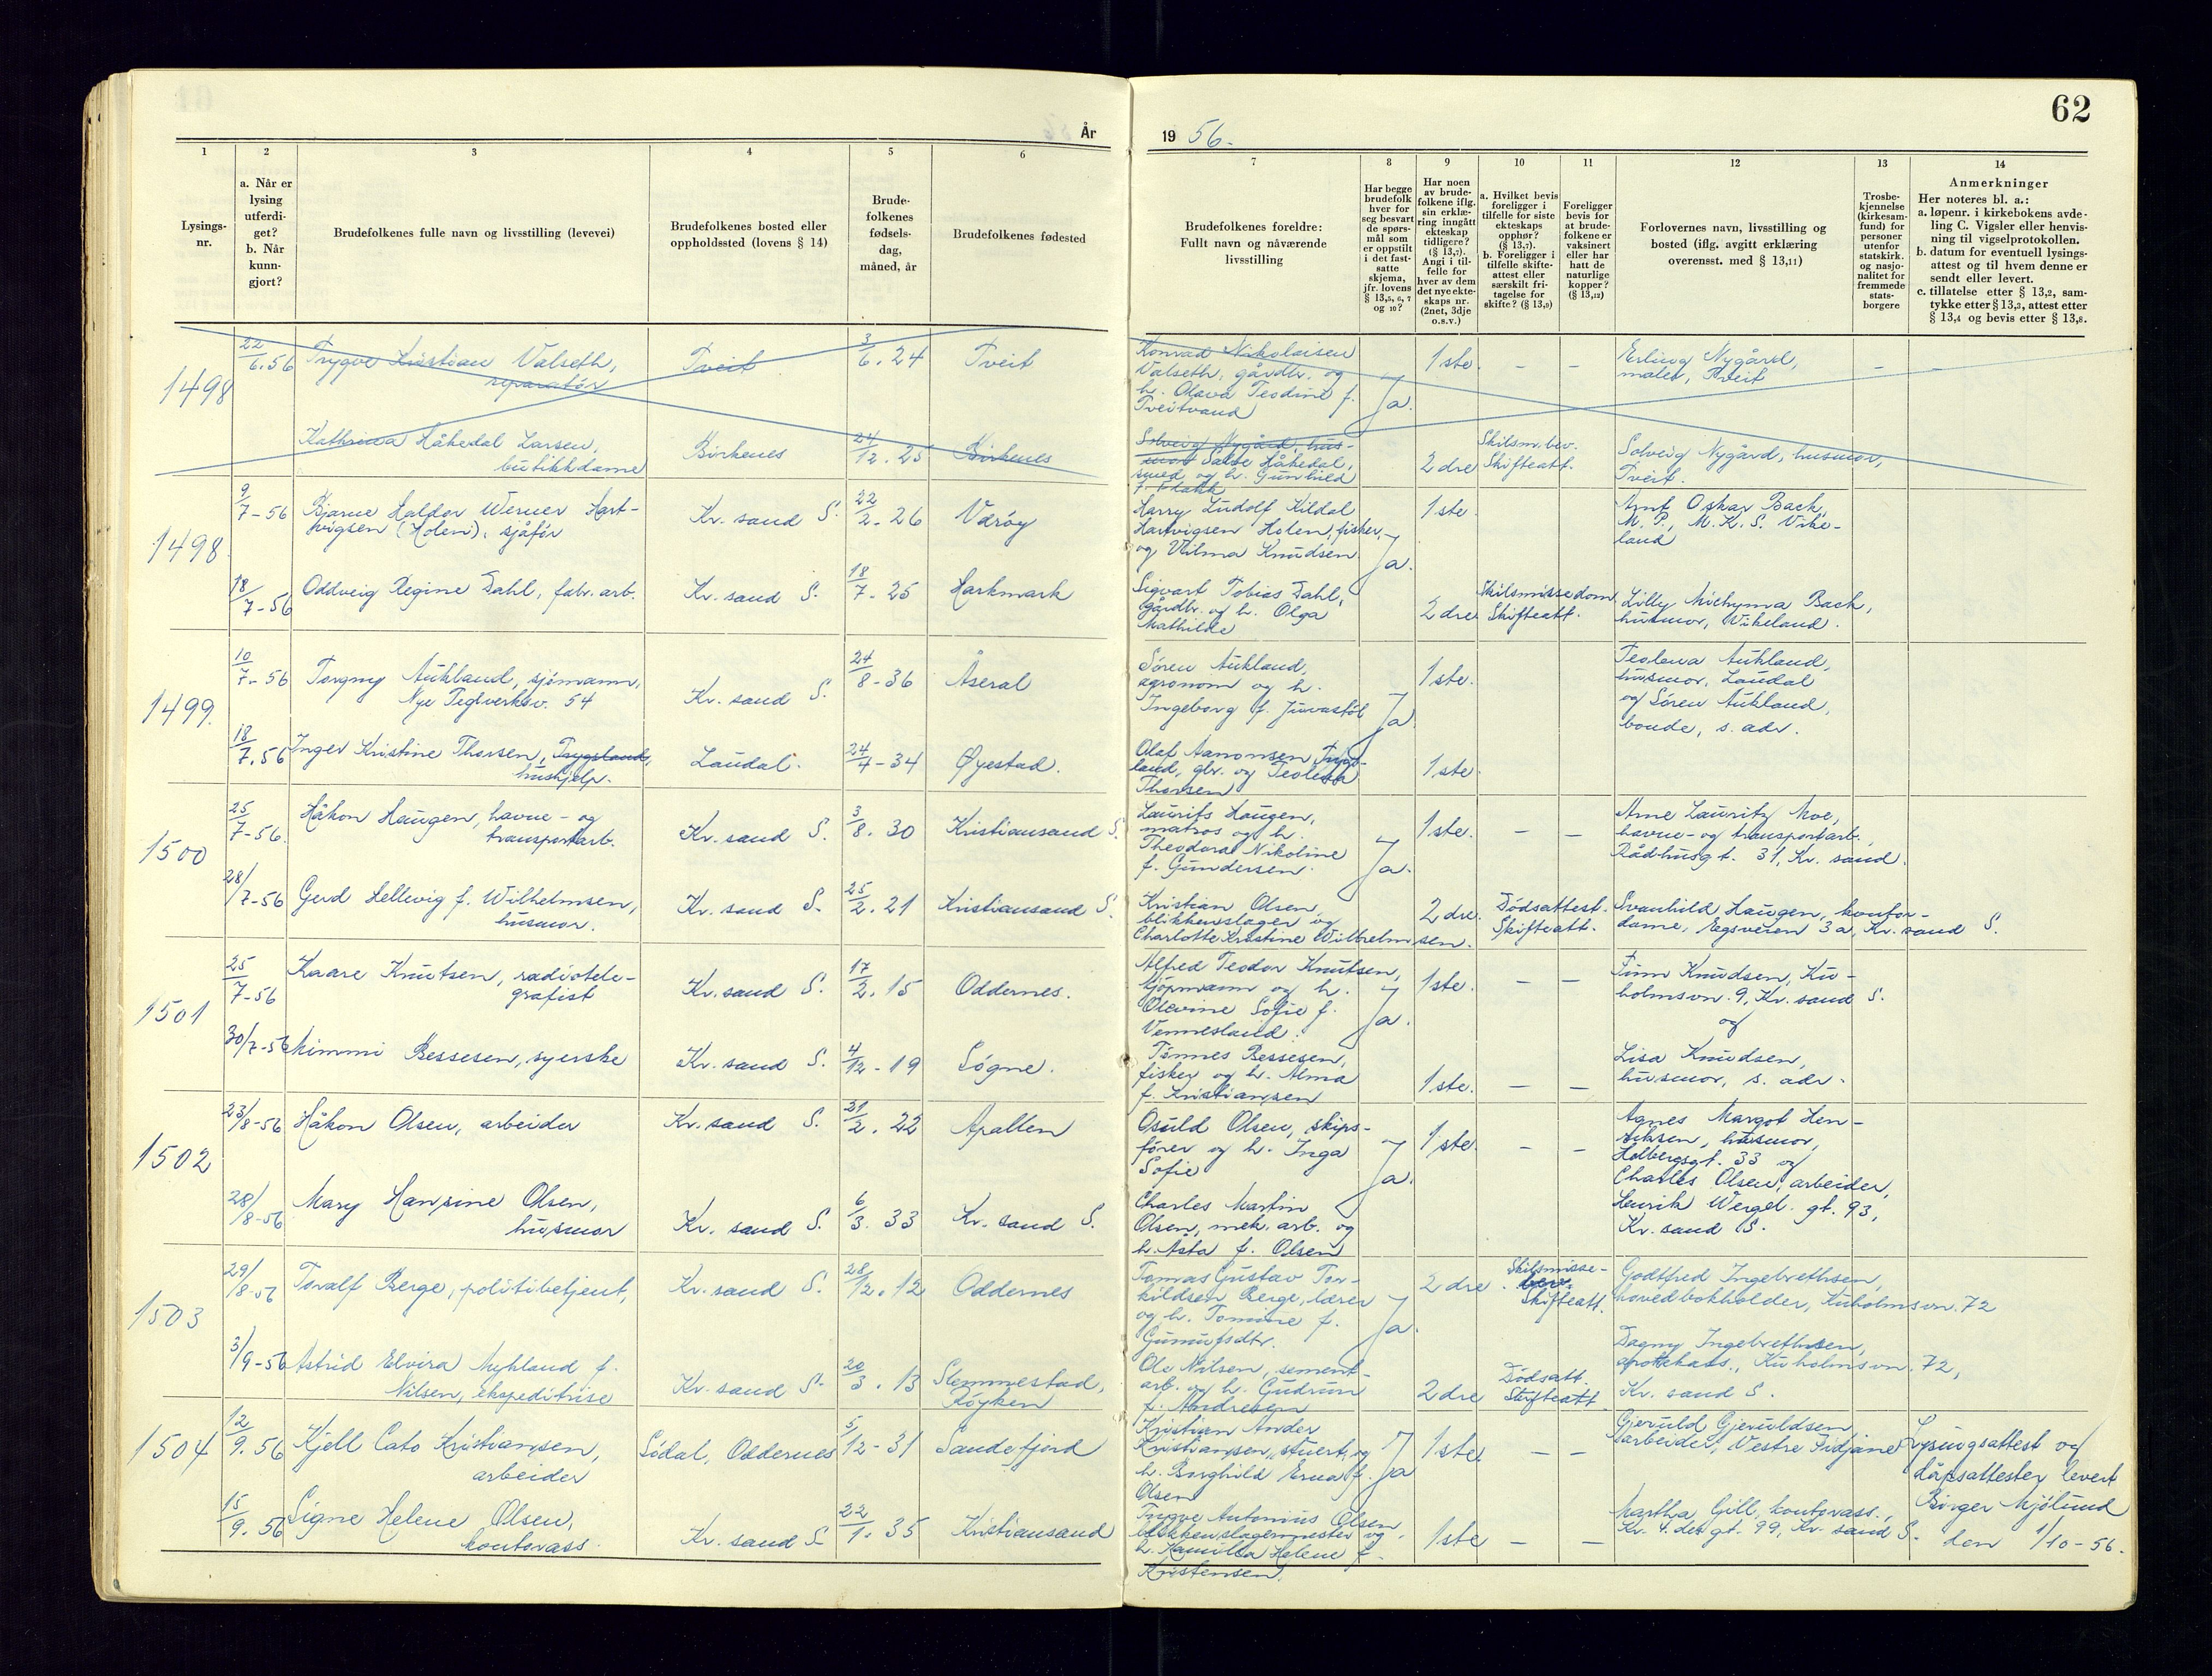 62
År 1956.
1
2
3
4
5
6
7
8
9
10
11
12
13
14
Lysings-
nr.
a. Når er
lysing
utferdi-
get?
b. Når
kunn-
gjort?
Brudefolkenes fulle navn og livsstilling (levevei)
Brudefolkenes bosted eller
oppholdssted (lovens § 14)
Brude-
folkenes
fødsels-
dag,
måned, år
Brudefolkenes fødested
Brudefolkenes foreldre:
Fullt navn og nåværende
livsstilling
Har begge
brudefolk
hver for
seg besvart
de spørs-
mål som
er oppstilt
i det fast-
satte
skjema,
jfr. lovens
§ 13,5, 6, 7
og 10?
Har noen
av brude-
folkene iflg.
sin erklæ-
ring inngått
ekteskap
tidligere?
(§ 13,7).
Angi i til-
felle for
hver av dem
det nye ekte-
skaps nr.
(2net, 3dje
o.s.v.)
a. Hvilket bevis
foreligger i
tilfelle for siste
ekteskaps
opphør?
(§ 13,7).
b. Foreligger i
tilfelle skifte-
attest eller
særskilt fri-
tagelse for
skifte? (§ 13,9)
Foreligger
bevis for
at brude-
folkene er
vaksinert
eller har
hatt de
naturlige
kopper?
(§ 13,12)
Forlovernes navn, livsstilling og
bosted (iflg. avgitt erklæring
overensst. med § 13,11)
Trosbe-
kjennelse
(kirkesam-
fund) for
personer
utenfor
statskirk.
og nasjo-
nalitet for
fremmede
stats-
borgere
Anmerkninger
Her noteres bl. a.:
a. løpenr. i kirkebokens avde-
ling C. Vigsler eller henvis-
ning til vigselprotokollen.
b. datum for eventuell lysings-
attest og til hvem denne er
sendt eller levert.
c. tillatelse etter § 13,2, sam-
tykke etter § 13,3, attest etter
§ 13,4 og bevis etter § 13,8.
1498
22/6.56
Trygve Kristian Valseth,
reparatør
Tveit
3/6. 24
Tveit
Konrad Nikolaisen
Valseth, gårdbr. og
h. Olava Teodine f.
Tveitvand
Ja.
1ste. – –
Erling Nygård,
maler, Tveit
– –
Kathrina Håhedal Larsen,
butikkdame
Birkenes
24/12. 25
Birkenes
Solveig Nygård, hus-
mor Salve Håhedal,
smed og h. Gunhild
2dre
Skilsm.bev.
Skifteatt.
Solveig Nygård, husmor,
Tveit.
1498.
9/7-56
Bjarne Haldor Werner Hart-
vigsen (Holen), sjåfør
Kr. sand S.
22/2. 26
Værøy
Harry Ludolf Kildal
Hartvigsen Holen, fisker,
og Vilma Knudsen
Ja.
1ste
Arnt Oskar Bach,
M. P., M. K. S. Vike-
land
18/7-56
Oddveig Regine Dahl, fabr. arb.
Kr. sand S.
18/7- 25
Harkmark
Sigvart Tobias Dahl,
gårdbr. og h. Olga
Mathilde
2dre
Skilsmissedom
Skifteatt.
Lilly Michyma Bach,
husmor, Vikeland.
1499.
10/7- 56
Torgny Aukland, sjømann,
Nye Teglverksv. 54
Kr. sand S.
24/8 - 36
Åseral
Søren Aukland,
agronom og h.
Ingeborg f. Juvastøl
Ja
1ste.
Teolena Aukland,
husmor, Laudal
og Søren Aukland,
bonde, s. adr.
18/7.56
Inger Kristine Thorsen, Trygsland,
hushjelp.
Laudal.
24/4 - 34
Øyestad.
Olaf Aanonsen Trygs-
land, gbr. og Teolena
Thorsen
1ste
1500
25/7-56.
Håkon Haugen, havne- og
transportarb.
Kr. sand S.
3/8. 30
Kristiansand S.
Laurits Haugen,
matros og h.
Theodora Nikoline
f. Gundersen.
Ja.
1ste. – –
Arne Lauritz Moe,
havne- og transportarb.,
Rådhusgt. 31, Kr. sand.
28/7-56
Gerd Hellevig f. Wilhelmsen,
husmor.
Kr. sand S.
25/2. 21
Kristiansand S.
Kristian Olsen,
blikkenslager og
Charlotte Kristine Wilhelmsen.
2dre.
Dødsattest.
Skifteatt.
Svanhild Haugen, kontor-
dame, Egsveien 3a, Kr. sand S.
1501
25/7-56
Kaare Knutsen, radiotele-
grafist
Kr. sand S.
17/2. 15
Oddernes.
Alfred Teodor Knutsen,
kjøpmann og h.
Olevine Sofie f.
Vennesland.
Ja.
1ste. – –
Finn Knudsen, Ku-
holmsvn. 9, Kr. sand S.
og
30/7-56
Mimmi Bessesen, syerske
Kr. sand S.
4/12 - 19
Søgne.
Tønnes Bessesen,
fisker og h. Alma
f. Kristiansen
1ste. – –
Lisa Knudsen,
husmor, s. adr.
1502
23/8-56
Håkon Olsen, arbeider
Kr. sand S.
21/2. 22
Apalten
Osuld Olsen, skips-
fører og h. Inga
Sofie
Ja.
1ste. – –
Agnes Margot Hen-
riksen, husmor,
Holbergsgt. 33 og
Charles Olsen, arbeider,
Henrik Wergel. gt. 93,
Kr. sand S.
28/8-56
Mary Hansine Olsen,
husmor
Kr. sand S.
6/3. 33
Kr. sand S.
Charles Martin
Olsen, mek. arb. og
h. Asta f. Olsen
1503
29/8-56
Toralf Berge, politibetjent,
Kr. sand S.
28/12. 12
Oddernes
Tomas Gustav Tor-
kildsen Berge, lærer
og h. Tomine f.
Gunulfsdtr.
Ja.
2dre
Skilsmisse-
bev.
Skifteatt.
Godtfred Ingebrethsen,
hovedbokholder, Kuholmsvn. 72
3/9-56
Astrid Elvira Myhland f.
Nilsen, ekspeditrise
Kr. sand S.
20/3. 13
Slemmestad,
Røyken
Ole Nilsen, sement-
arb. og h. Gudrun
f. Andresen
2dre
Dødsatt.
Skifteatt
Dagny Ingebrethsen,
apotekass., Kuholmsvn. 72,
Kr. sand S.
1504
12/9. 56
Kjell Cato Kristiansen,
arbeider
Sødal, Oddernes
5/12 - 31
Sandefjord
Kristian Ander
Kristiansen, stuert, og
h. Borghild Erna f.
Olsen
Ja
1ste – –
Gjeruld Gjeruldsen
arbeider, Vestre Tidjane
Lysingsattest og
dåpsattester levert
Birger Mjølund
den 1/10-56.
15/9. 56
Signe Helene Olsen,
kontorass.
Kr. sand S
22/1. 35
Kristiansand
Yngve Antonius Olsen
blikkenslagermester og
h. Kamilla Helene f.
Kristensen.
1ste – –
Martha Gill, kontorass.,
Kr. 4.des gt. 99, Kr. sand S.